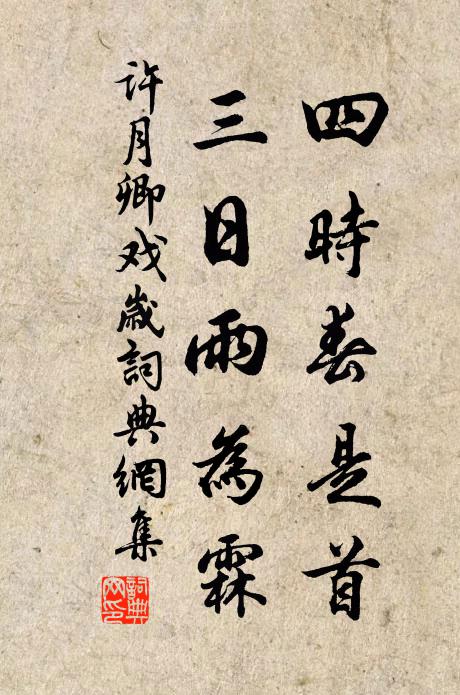 四時春是首
三日雨為霖
許月卿戏歲詞典網集
詞典
网印